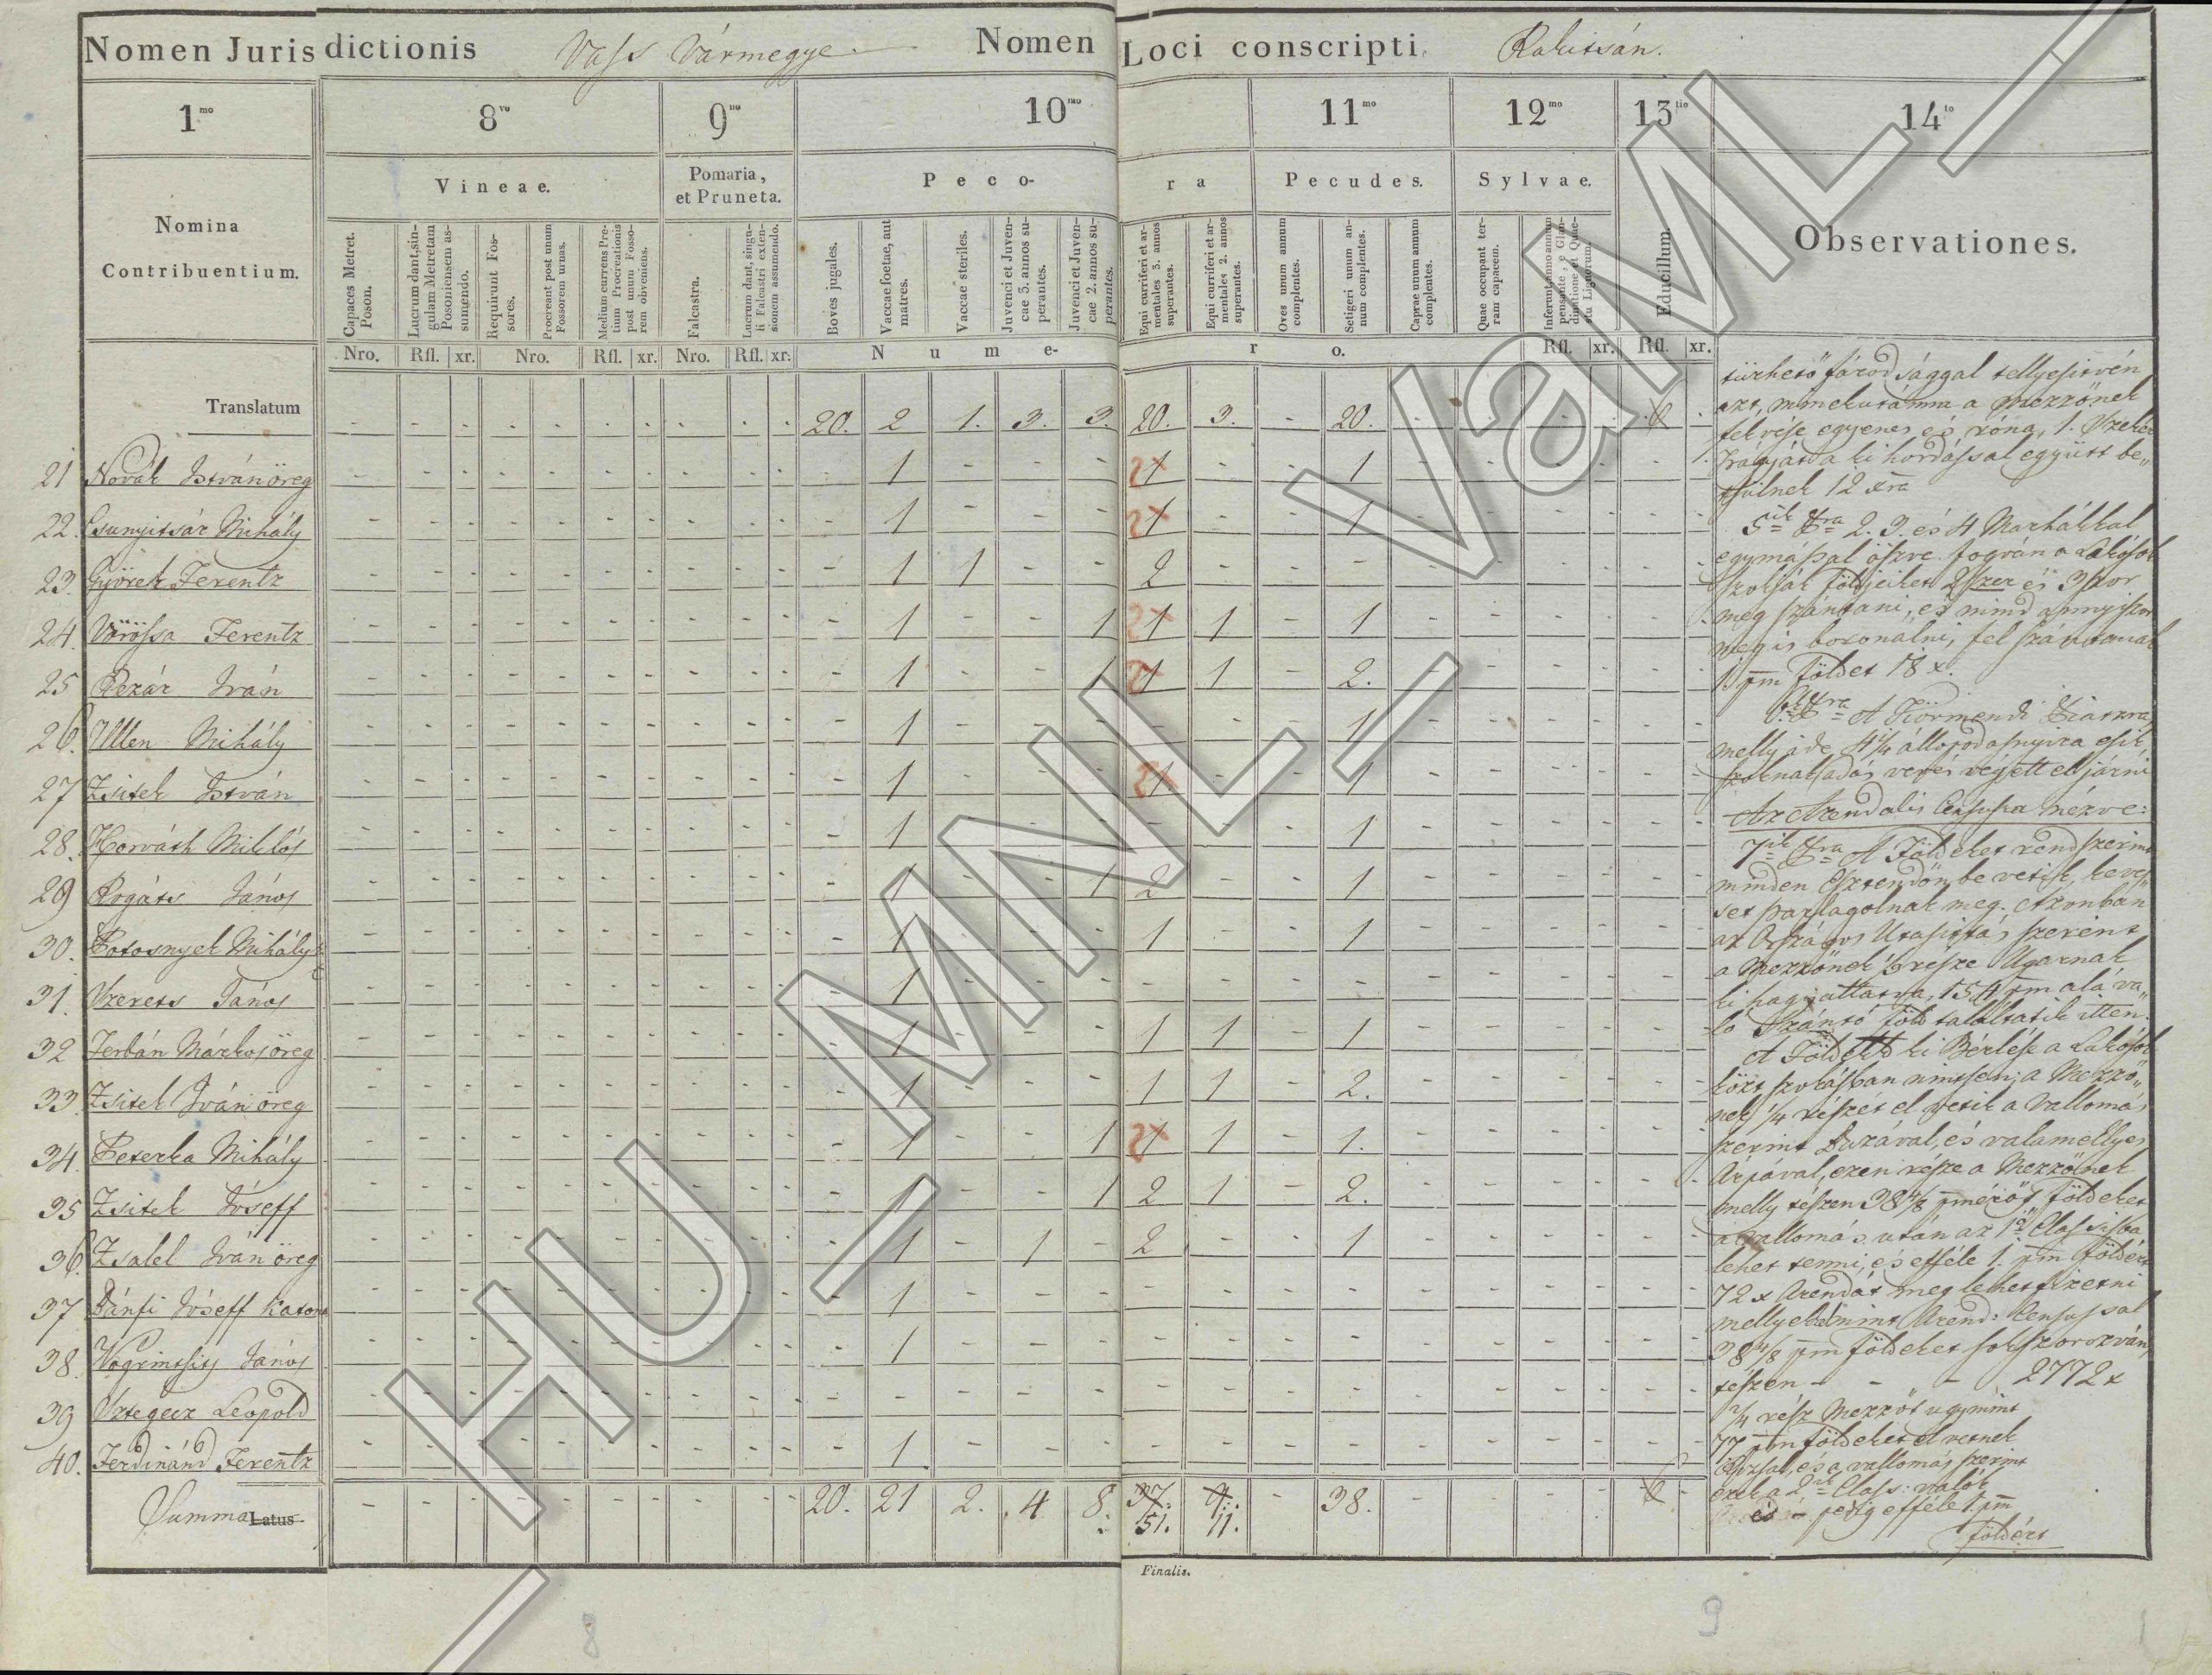 Nomen Jurisdictionis Vass Vármegye. Nomen Loci conscripti. Rakitsán.
1mo 8vo 9no 10mo 11mo 12mo 13tio 14to
Nomina Contribuentium.
Vineae.
Pomaria, et Pruneta.
Pecora
Pecudes.
Sylvae.
Educillum.
Observationes.
Capaces Metret. Poson.
Lucrum dant, singulam Metretam Posoniensem assumendo.
Requirunt Fossores.
Procreant post unum Fossorem urnas.
Medium currens Pretium Procreationis post unum Fossorem obveniens.
Falcastra.
Lucrum dant, singuli Falcastri extensionem assumendo.
Boves jugales.
Vaccae foetae, aut matres.
Vaccae steriles.
Juvenci et Juvencae 3. annos superantes.
Juvenci et Juvencae 2. annos superantes.
Equi curriferi et armentales 3. annos superantes.
Equi curriferi et armentales 2. annos superantes.
Oves unum annum complentes.
Setigeri unum annum complentes.
Caprae unum annum complentes.
Quae occupant terram capacem.
Nro. Rfl. xr. Nro. Rfl. xr. Nro. Rfl. xr. Nume- ro. Rfl. xr. Rfl. xr.
Translatum - - - - - - - - - - 20. 2 1. 3. 3. 20. 3. - 20.
21 Novák István öreg 1 - - - 1 - - 1
22. Csunyitsár Mihály 1 - - - 1 - - 1
23. Györek Ferentz 1 1 - - 2 - - -
24. Vörössa Ferentz 1 - - 1 1 1 - 1
25 Pezár Iván 1 - - 1 1 1 - 2.
26. Ullen Mihály 1 - - - - - - 1
27 Zsitek István 1 - - - 1 - - 1
28. Horváth Miklós 1 - - - - - - 1
29 Rogáts János 1 - - 1 2 - - 1
30. Potosnyek Mihály 1 - - - 1 - - 1
31. Szerets János 1 - - - - - - -
32 Ferbán Márkus öreg 1 - - - 1 1 - 1
33. Zsitek Iván öreg 1 - - - 1 1 - 2.
34. Peterka Mihály 1 - - 1 1 1 - 1.
35 Zsitek Jóseff 1 - - 1 2 1 - 2.
36. Zsalel Iván öreg 1 - 1 - 2 - - 1
37 Bánfi Jóseff Katona 1 - - - - - - -
38. Vogrintsits János 1 - - - - - - -
39 Leopold - - - - - - - -
40. Ferdinánd Ferentz 1 - - - - - - -
Summa Latus 20. 21 2. 4 8. 37. 9. - 38.
51. 11.
azt, minekutánna a Mezzőnek
fekvése egyenes és róna, 1. Szeker
ki hordással együtt be„
tsülnek 12 xra
5ik Xra 2. 3. és 4 Marhákkal
egymással öszve fogván a Lakosok
szokták földjeiket 2szer és 3szor
meg szántani, és mind annyiszor
meg is boronálni, fel szántanak
1 pm földet 18 x.
6ik Xra A Körmendi Piatzra,
melly ide 4 1/4 állapodásnyira esik,
szoknak adás vevés végett el járni
Az Arendalis Censusra nézve:
7ik Xra A Földeket rendszerint
minden Esztendőn be vetik, keve„
set parlagolnak meg. Azonban
az Országos Utasittás szerint
a Mezzőnek része Ugarnak
ki hagyattatva, 154 pm alá va„
ló Szántó föld találtatik itten.
A Földeknek ki Bérlése a Lakosok
közt szokásban nintsen; a Mezző„
nek 1/4 részét el vetik a Vallomás
szerint Buzával, és valamellyes
Árpával, ezen része a Mezzőnek
melly tészen 38 4/8 földeket
a vallomás után az 1ső Classisba
lehet tenni, és efféle 1. pm földért
72 x Arendát meg lehet fizetni
mellyel mint Arend: Censussal
38 4/8 pm földeket sokszorozván,
tészen - - - 2772 x
2/4 rész Mezzőt ugymint
77 pm földeket el vetnek
Rozsal, és a vallomás szerint
ezek a 2ik Class: valók
és pedig efféle 1. pm
földért
Finalis.
8
9
HU_MNL_VaML_